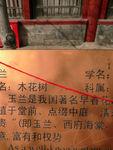 兰 学名:
名: 木花树 科属:
玉兰是我国著名早春花
道于堂前、点缀中庭
贵”(即玉兰、西府海棠
, 富有和权势